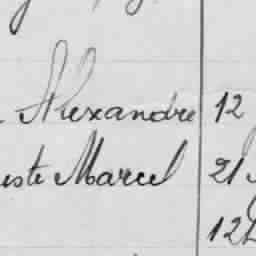 Alexandre 12
este Marcel 21
12